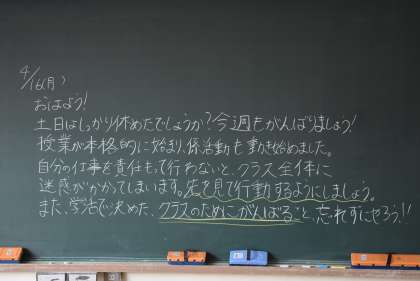 4/16(月)
おはよう!
土日はしっかり休めたでしょうか?今週もがんばりましょう!
授業が本格的に始まり、係活動も動き始めました。
自分の仕事を責任もって行わないと、クラス全体に
迷惑がかかってしまいます。先を見て行動するようにしましょう。
また、学活で決めた、クラスのためにがんばると、忘れずにやろう!!